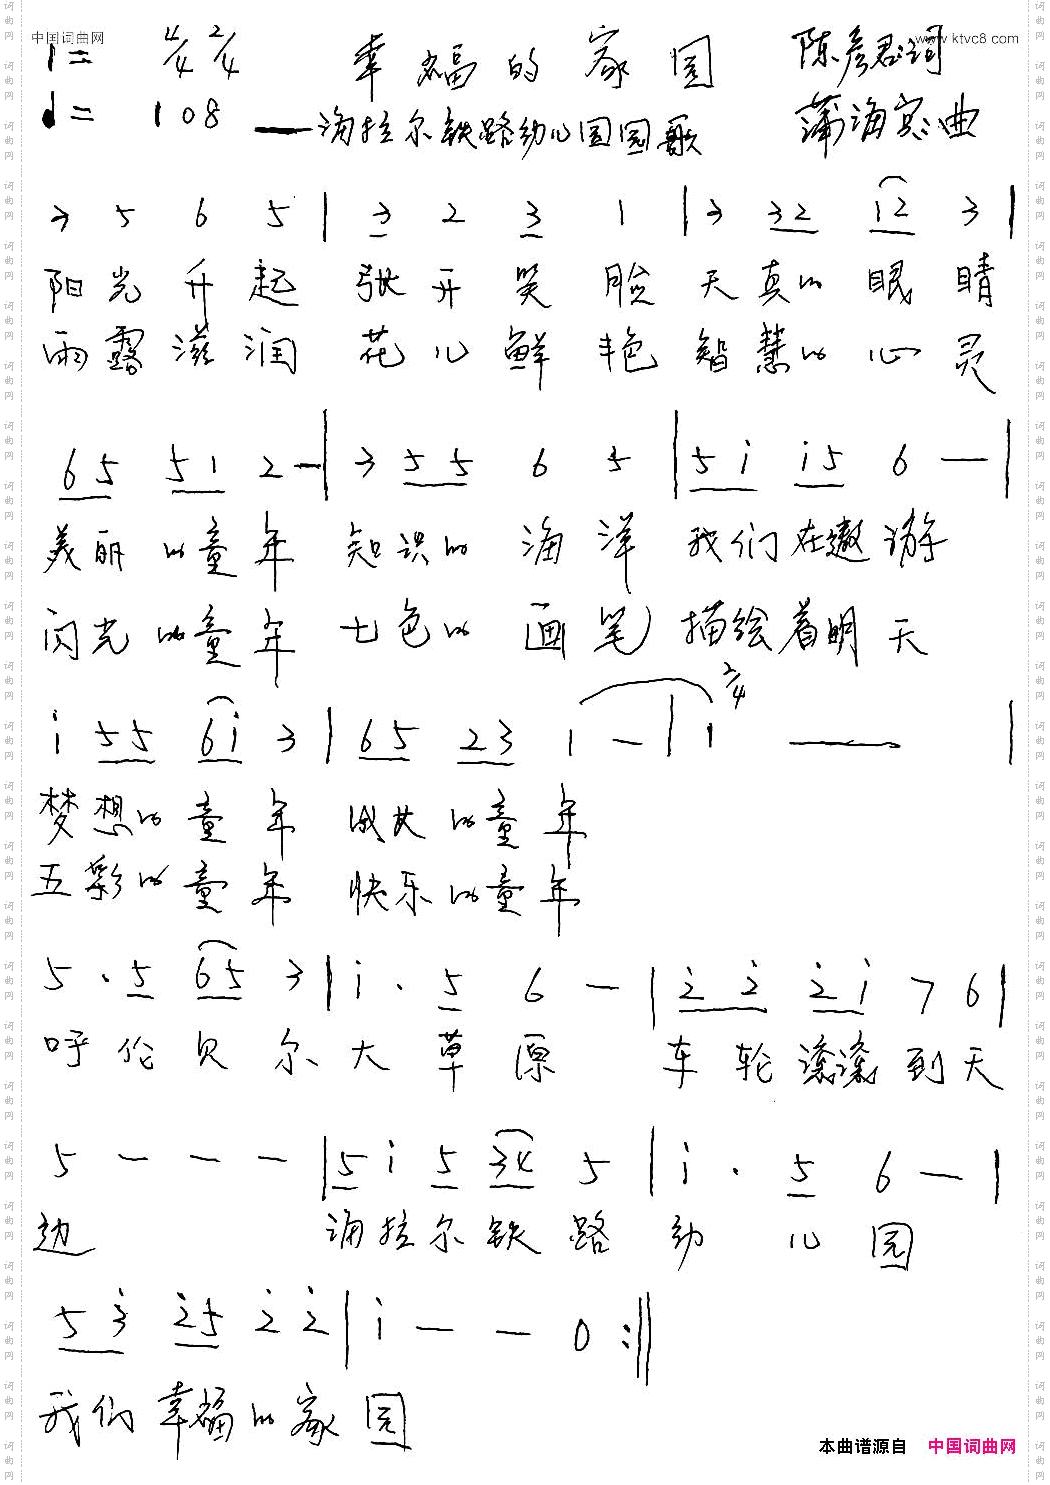 中国词曲网 www.ktvc8.com
1= 4/4 2/4 幸福的家园 陈彦君词
♩= 108 ——海拉尔铁路幼儿园园歌 蒲海宽曲
3 5 6 5 | 3 2 3 1 | 3 32 12 3 |
阳光升起 张开笑脸 天真的眼睛
雨露滋润 花儿鲜艳 智慧的心灵
65 51 2 - | 3 55 6 5 | 5i i5 6 — |
美丽的童年 知识的海洋 我们在遨游
闪光的童年 七色的画笔 描绘着明天
2/4
i 55 6i 3 | 65 23 1 - | i — |
梦想的童年 的童年
五彩的童年 快乐的童年
5 · 5 65 3 | i · 5 6 - | 2̇ 2̇ 2̇ i 7 6 |
呼伦贝尔大草原 车轮滚滚到天
5 - - - | 5 i 5 34 5 | i · 5 6 — |
边 海拉尔铁路幼儿园
5 3̇ 2̇5 2̇ 2̇ | i - - 0 :||
我们幸福的家园
本曲谱源自 中国词曲网